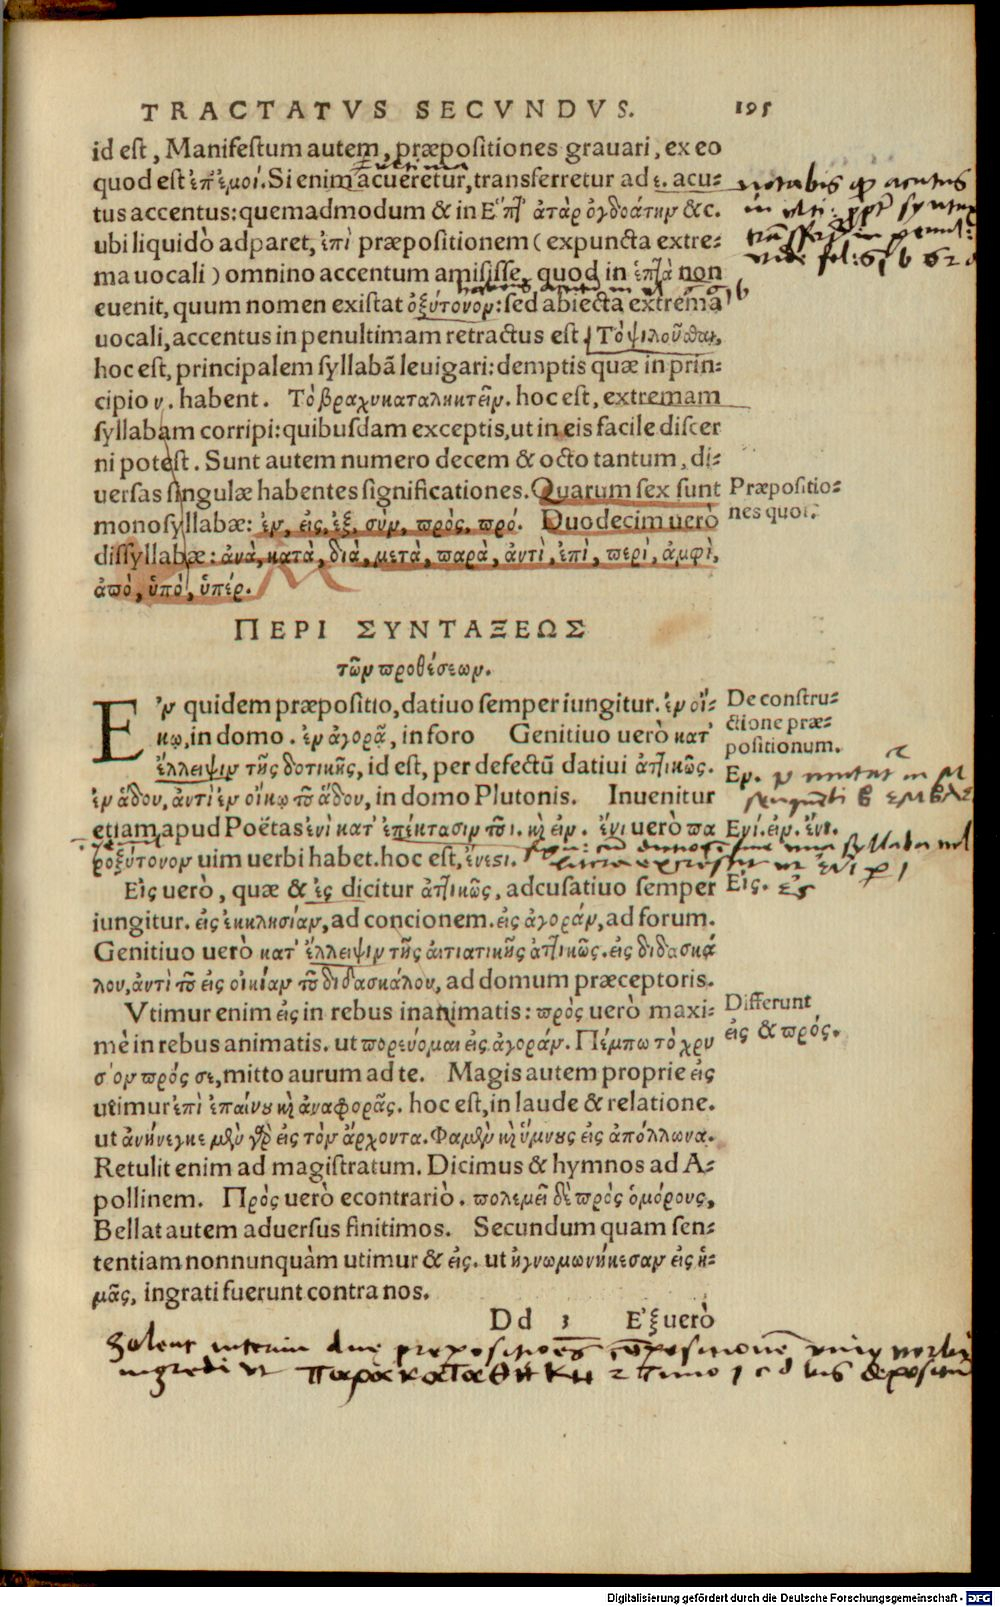 TRACTATVS SECVNDVS. 195
id est, Manifestum autem, præpositiones grauari, ex eo
quod est ἐπ' ἐμοί. Si enim acueretur, transferretur ad ε. acu-
tus accentus: quemadmodum & in Ἔπι ἀτὰρ ὀγδοάτην &c.
ubi liquidò adparet, ἐπὶ præpositionem (expuncta extre-
ma uocali) omnino accentum amisisse, quod in ἑπτὰ non
euenit, quum nomen existat ὀξύτονον: sed abiecta extrema
uocali, accentus in penultimam retractus est. Τὸ ψιλοῦσθαι,
hoc est, principalem syllabã leuigari: demptis quæ in prin-
cipio υ. habent. Τὸ βραχυκαταληκτεῖν. hoc est, extremam
syllabam corripi: quibusdam exceptis, ut in eis facile discer
ni potest. Sunt autem numero decem & octo tantum, di-
uersas singulæ habentes significationes. Quarum sex sunt
monosyllabæ: ἐν, εἰς, ἐξ, σὺν, πρὸς, πρό. Duodecim uerò
dissyllabæ: ἀνὰ, κατὰ, διὰ, μετὰ, παρὰ, ἀντὶ, ἐπὶ, περὶ, ἀμφὶ,
ἀπὸ, ὑπὸ, ὑπέρ.
Præpositio-
nes quot.
ΠΕΡΙ ΣΥΝΤΑΞΕΩΣ
τῶν προθέσεων.
Ἐν quidem præpositio, datiuo semper iungitur. ἐν οἴ-
κῳ, in domo. ἐν ἀγορᾷ, in foro Genitiuo uerò κατ'
ἔλλειψιν τῆς δοτικῆς, id est, per defectũ datiui ἀττικῶς.
ἐν ᾅδου, ἀντὶ ἐν οἴκῳ τοῦ ᾅδου, in domo Plutonis. Inuenitur
etiam apud Poëtas ἐνὶ κατ' ἐπέκτασιν τοῦ ι. καὶ εἰν. ἔνι uerò πα
ροξύτονον uim uerbi habet. hoc est, ἔνεστι.
De constru-
ctione præ-
positionum.
Εν.
Ενί. εἰν. ἔνι.
Εἰς uerò, quæ & ἐς dicitur ἀττικῶς, adcusatiuo semper
iungitur. εἰς ἐκκλησίαν, ad concionem. εἰς ἀγοράν, ad forum.
Genitiuo uerò κατ' ἔλλειψιν τῆς αἰτιατικῆς ἀττικῶς. εἰς διδασκά
λου, ἀντὶ τοῦ εἰς οἰκίαν τοῦ διδασκάλου, ad domum præceptoris.
Εἰς. ἐς
Vtimur enim εἰς in rebus inanimatis: πρὸς uerò maxi-
mè in rebus animatis. ut πορεύομαι εἰς ἀγοράν. Πέμπω τὸ χρυ
σ'ον πρός σε, mitto aurum ad te. Magis autem proprie εἰς
utimur ἐπὶ ἐπαίνου καὶ ἀναφορᾶς. hoc est, in laude & relatione.
ut ἀνήνεγκε μὲν γὰρ εἰς τὸν ἄρχοντα. Φαμὲν καὶ ὕμνους εἰς ἀπόλλωνα.
Retulit enim ad magistratum. Dicimus & hymnos ad A-
pollinem. Πρὸς uerò econtrariò. πολεμεῖ δὲ πρὸς ὁμόρους,
Bellat autem aduersus finitimos. Secundum quam sen-
tentiam nonnunquàm utimur & εἰς. ut ἠγνωμονήκεσαν εἰς ἡ-
μᾶς, ingrati fuerunt contra nos.
Differunt
εἰς & πρός.
Dd 3 Ἐξ uerò
Solent interim due prepositiones
ingredi ut παρακαταθήκη
Digitalisierung gefördert durch die Deutsche Forschungsgemeinschaft - DFG